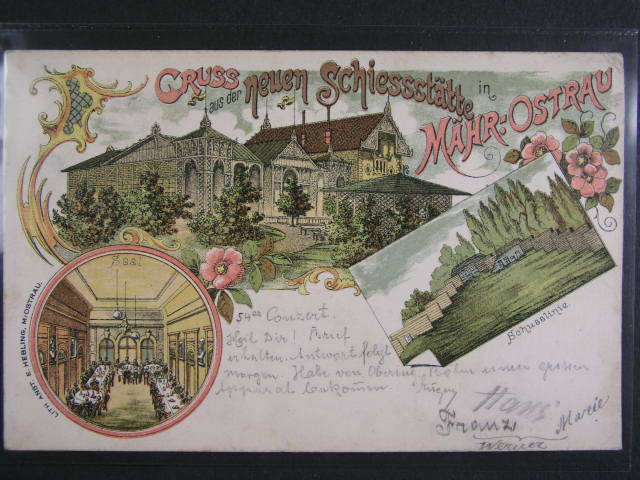 GRUSS aus der neuen Schiessstätte in
MÄHR.-OSTRAU
Saal
Schusslinie
LITH. ANST. E. HEBLING, M.-OSTRAU.
Conzert.
Heil Dir! Brief
erhalten. Antwort folgt
morgen. Habe von Böhm einen grossen
Apparat bekommen.
Hans
Franz
Marie
Werner